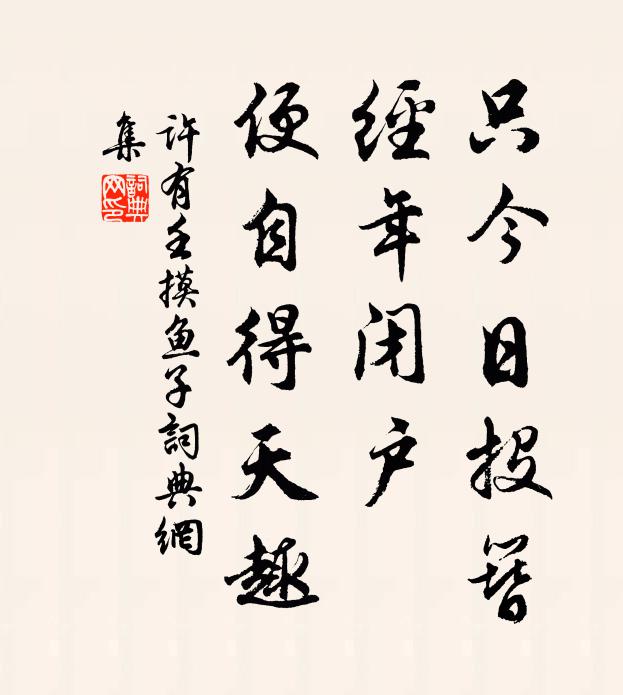 只今日投簪
經年闭户
便自得天趣
許有壬摸鱼子詞典網
集
詞典
网印